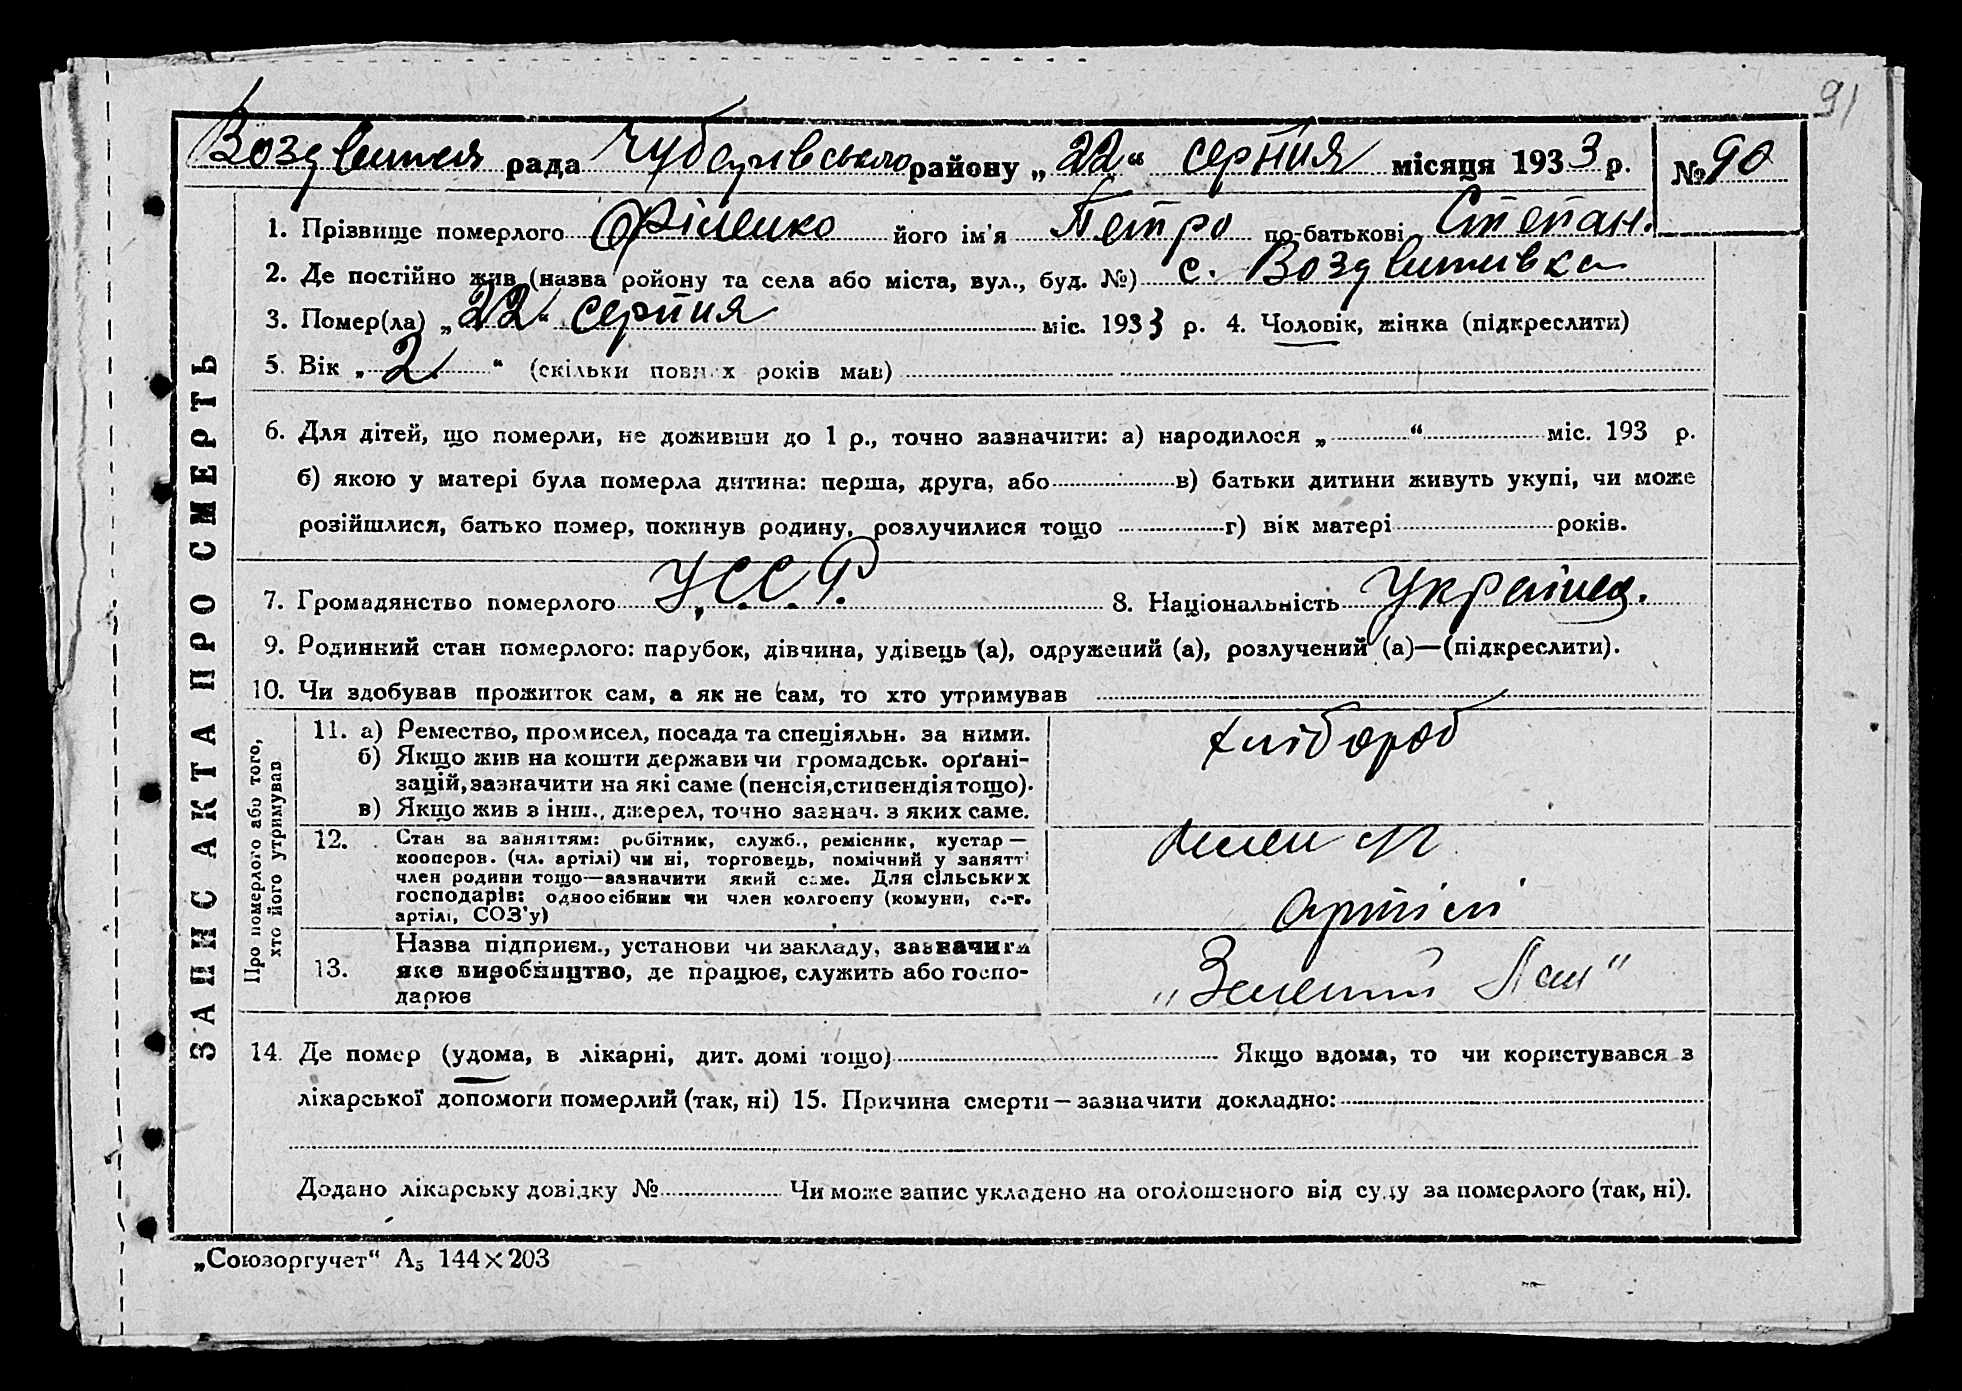 91
Воздвижская рада Чубарівського району „22“ серпня місяця 1933 р. № 90
ЗАПИС АКТА ПРО СМЕРТЬ
1. Прізвище померлого Філенко його ім'я Петро по-батькові Степан.
2. Де постійно жив (назва ройону та села або міста, вул., буд. №) с. Воздвижівка
3. Помер(ла) „22“ серпня міс. 1933 р. 4. Чоловік, жінка (підкреслити)
5. Вік „2.“ (скільки повних років мав)
6. Для дітей, що померли, не доживши до 1 р., точно зазначити: а) народилося „ “ міс. 193 р.
б) якою у матері була померла дитина: перша, друга, або в) батьки дитини живуть укупі, чи може
розійшлися, батько помер, покинув родину, розлучилися тощо г) вік матері років.
7. Громадянство померлого У.С.С.Р. 8. Національність Українец.
9. Родинний стан померлого: парубок, дівчина, удівець (а), одружений (а), розлучений (а)—(підкреслити).
10. Чи здобував прожиток сам, а як не сам, то хто утримував
Про померлого або того,
хто його утримував
11. а) Ремество, промисел, посада та спеціяльн. за ними. хлібороб
б) Якщо жив на кошти держави чи громадськ. орґані-
зацій, зазначити на які саме (пенсія, стипендія тощо).
в) Якщо жив з інш., джерел, точно зазнач. з яких саме.
12. Стан за заняттям: робітник, служб., ремісник, кустар —
кооперов. (чл. артілі) чи ні, торговець, помічний у занятті
член родини тощо—зазначити який саме. Для сільських
господарів: одноосібник чи член колгоспу (комуни, с.-г.
артілі, СОЗ'у) артілі
Назва підприєм., установи чи закладу, зазначити
13. яке виробництво, де працює, служить або госпо- „Зелений Лан“
дарює
14. Де помер (удома, в лікарні, дит. домі тощо) Якщо вдома, то чи користувався з
лікарської допомоги померлий (так, ні) 15. Причина смерти — зазначити докладно:
Додано лікарську довідку № Чи може запис укладено на оголошеного від суду за померлого (так, ні).
„Союзоргучет“ А₅ 144×203